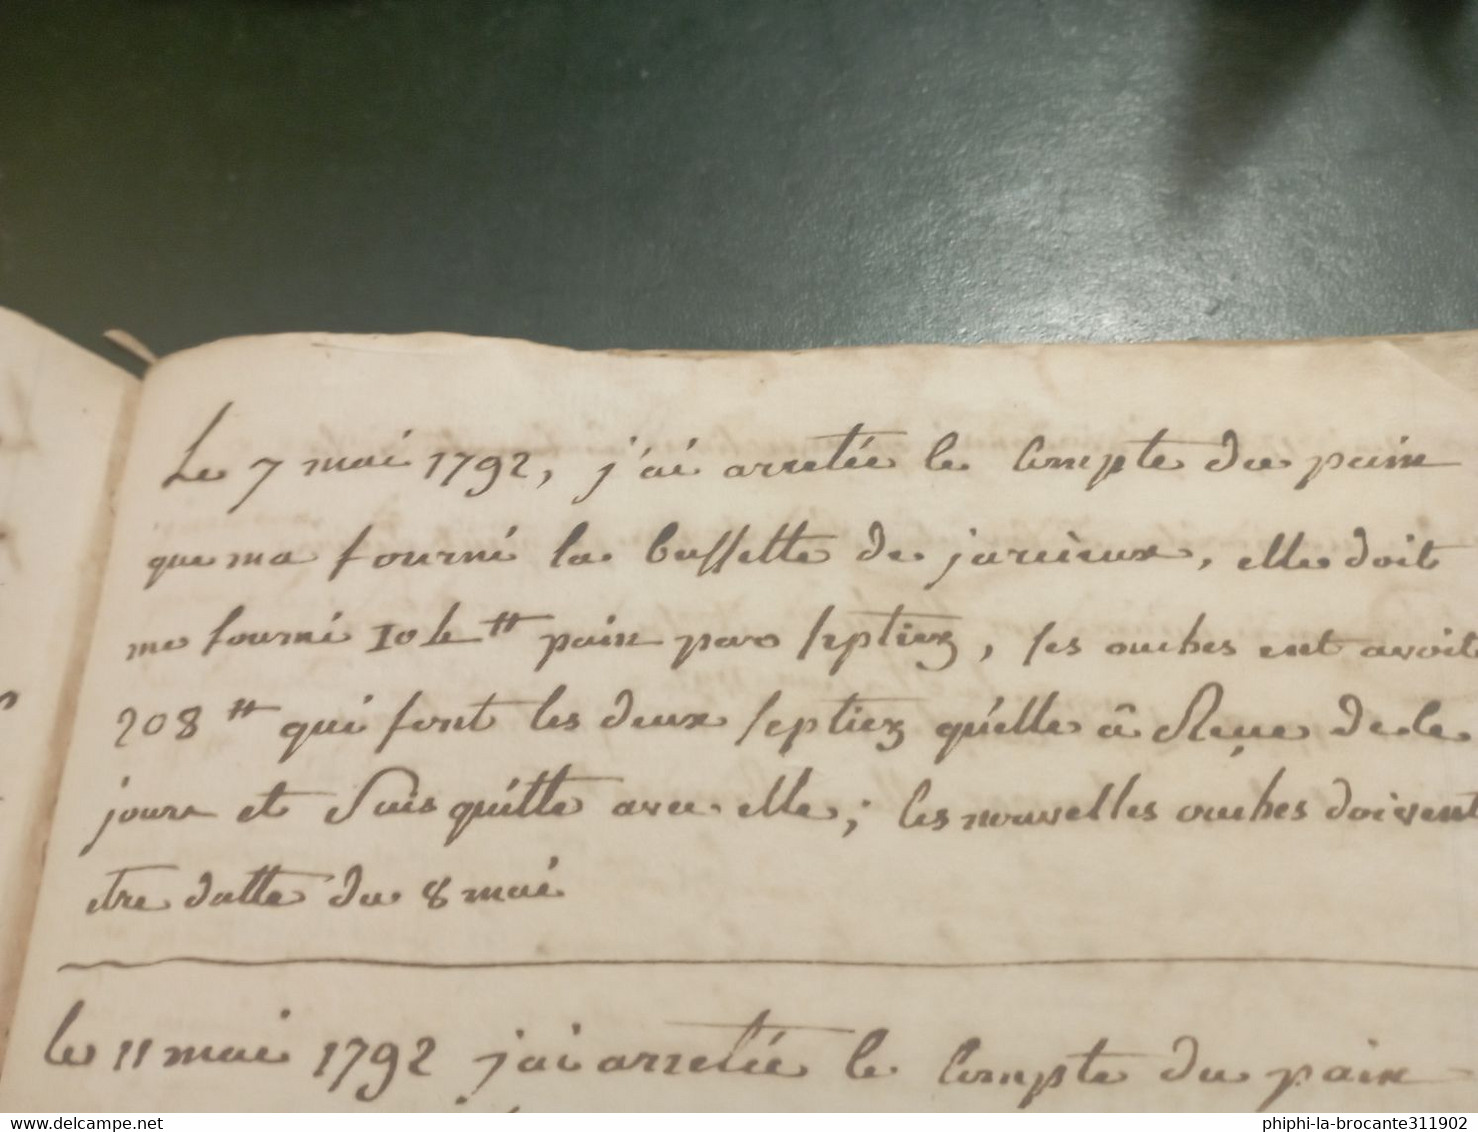 Le 7 mai 1792, j'ai arretée le compte du pain
que ma fourni la bussette de jarieux, elle doit
me fourni 104 tt pain par septiez, ses ouches ont avoit
208 tt qui font les deux septiez quélle â Reçue de le
jours et Suis quitte avec elle; les nouvelles ouches doivent
etre datté du 8 mai
le 11 mai 1792 j'ai arretée le compte du pain
phiphi-la-brocante311902
delcampe.net